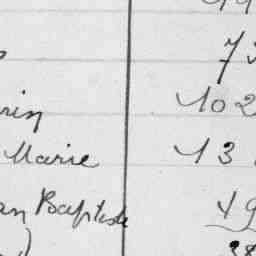 73
rin 102
Marie 13
an Baptiste 49
38